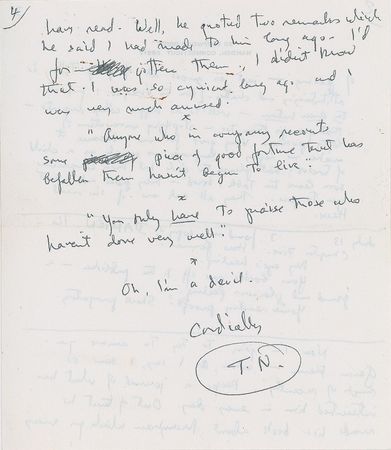 4
have read. Well, he quoted two remarks which
he said I had made to him long ago. I'd
for-gotten them; I didn't know
that I was so cynical long ago and I
was very much amused.
*
"Anyone who in company recounts
some piece of good fortune that has
befallen them haven't begun to live."
*
"You only have to praise those who
haven't done very well."
*
Oh, I'm a devil.
Cordially
T. N.